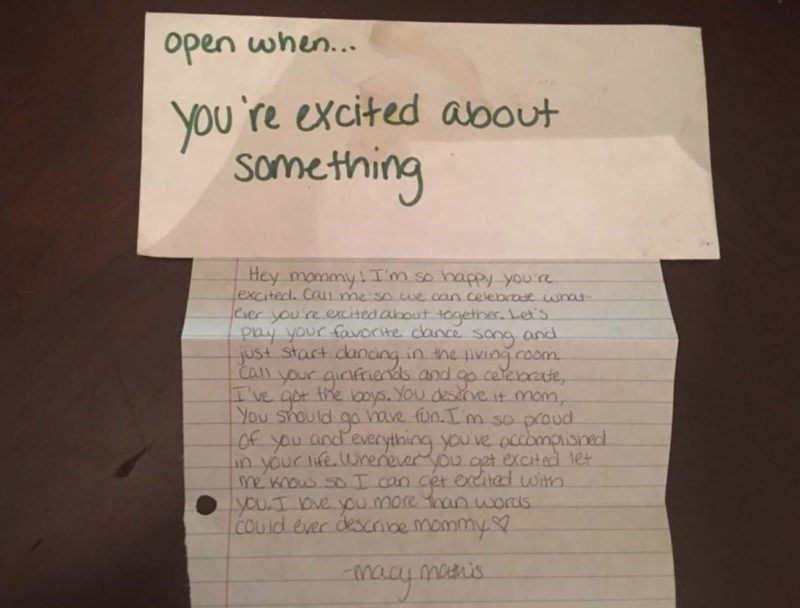 open when...
you're excited about
something
Hey mommy! I'm so happy you're
excited. Call me so we can celebrate what-
ever you're excited about together. Let's
play your favorite dance song and
just start dancing in the living room
Call your girlfriends and go celebrate,
I've got the boys. You deserve it mom,
You should go have fun. I'm so proud
of you and everything you've accomplished
in your life. Whenever you get excited let
me know so I can get excited with
you. I love you more than words
could ever describe mommy ♡
-macy mathis